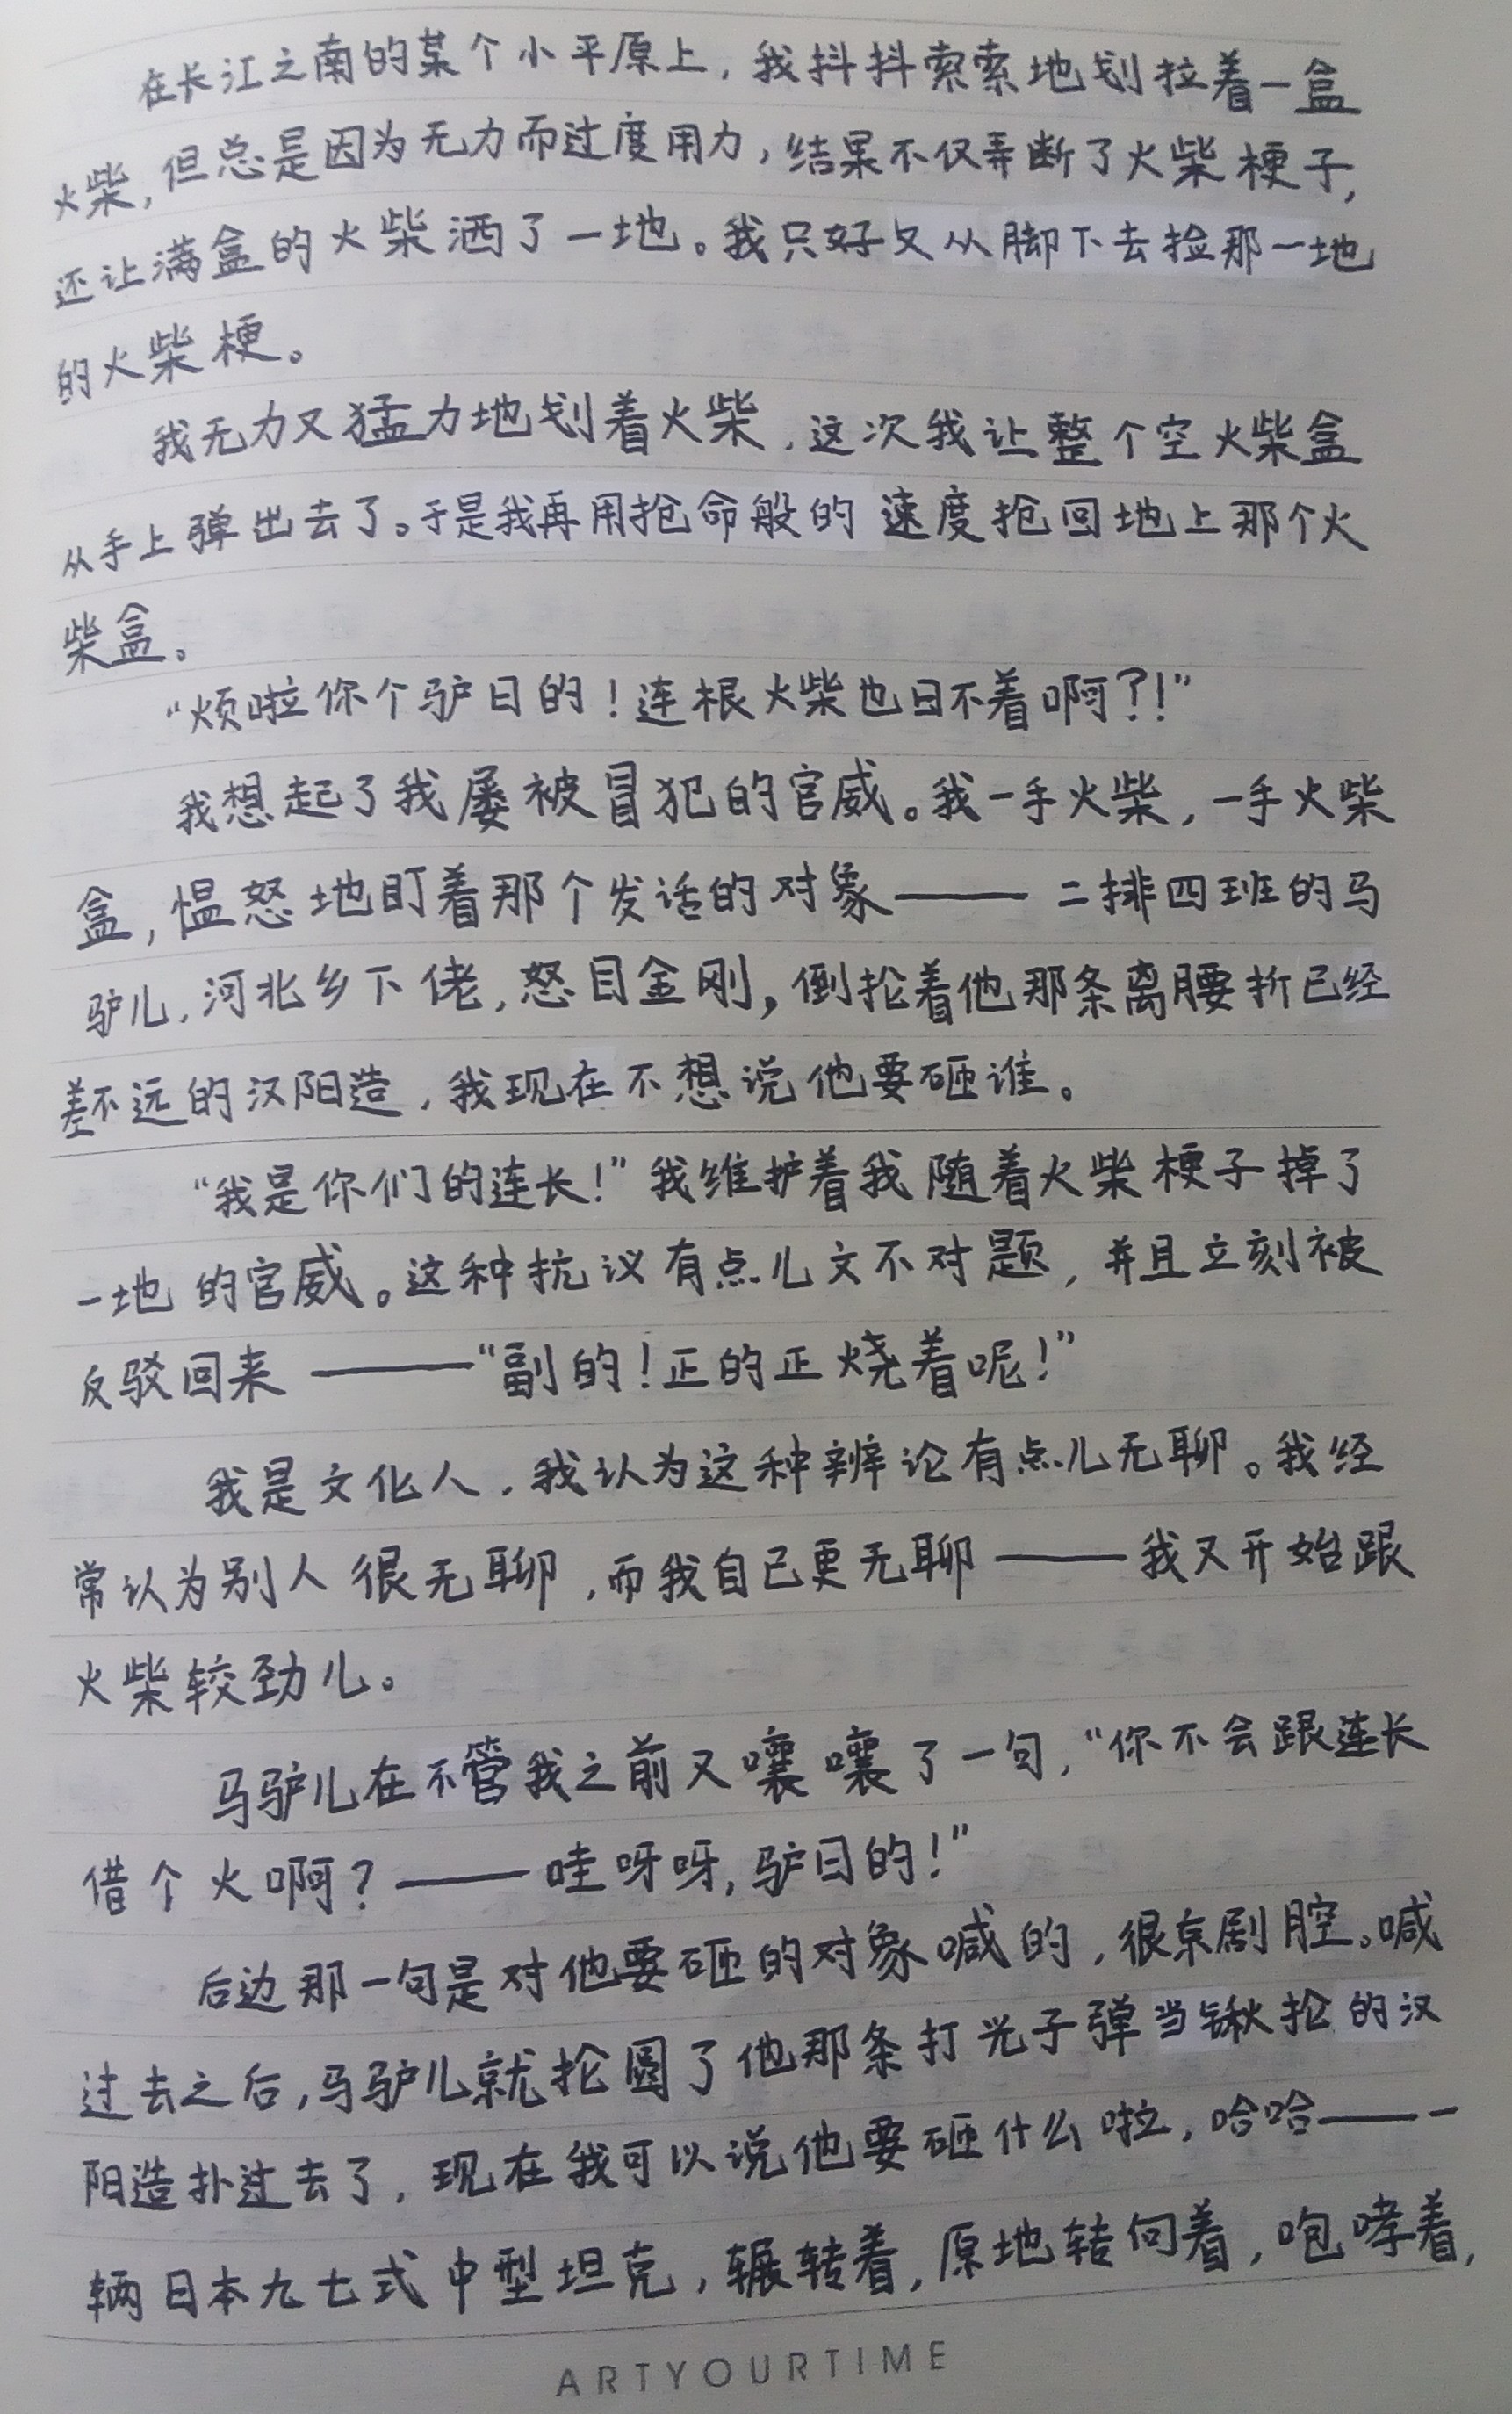 在长江之南的某个小平原上，我抖抖索索地划拉着一盒
火柴，但总是因为无力而过度用力，结果不仅弄断了火柴梗子，
还让满盒的火柴洒了一地。我只好又从脚下去捡那一地
的火柴梗。
我无力又猛力地划着火柴，这次我让整个空火柴盒
从手上弹出去了。于是我再用抢命般的速度抢回地上那个火
柴盒。
“烦啦你个驴日的！连根火柴也日不着啊？！”
我想起了我屡被冒犯的官威。我一手火柴，一手火柴
盒，愠怒地盯着那个发话的对象——二排四班的马
驴儿，河北乡下佬，怒目金刚，倒抡着他那条离腰折已经
差不远的汉阳造，我现在不想说他要砸谁。
“我是你们的连长！”我维护着我随着火柴梗子掉了
一地的官威。这种抗议有点儿文不对题，并且立刻被
反驳回来——“副的！正的正烧着呢！”
我是文化人，我认为这种辨论有点儿无聊。我经
常认为别人很无聊，而我自己更无聊——我又开始跟
火柴较劲儿。
马驴儿在不管我之前又嚷嚷了一句，“你不会跟连长
借个火啊？——哇呀呀，驴日的！”
后边那一句是对他要砸的对象喊的，很京剧腔。喊
过去之后，马驴儿就抡圆了他那条打光子弹当锹抡的汉
阳造扑过去了，现在我可以说他要砸什么啦，哈哈——一
辆日本九七式中型坦克，辗转着，原地转向着，咆哮着，
ARTYOURTIME